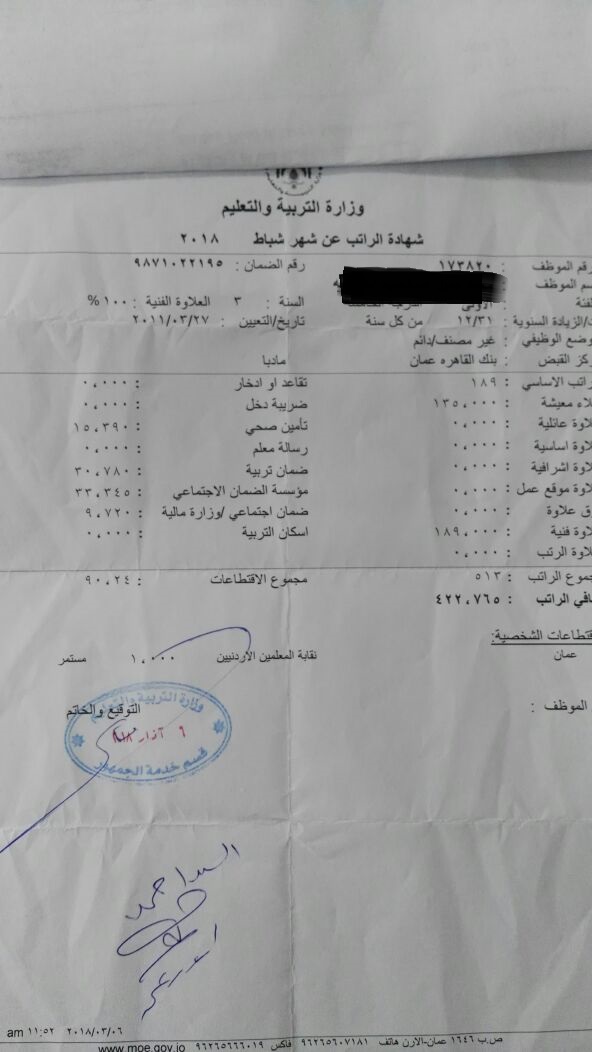 وزارة التربية والتعليم
شهادة الراتب عن شهر شباط ٢٠١٨
رقم الموظف : ١٧٣٨٢٠ رقم الضمان : ٩٨٧١٠٢٢١٩٥
سم الموظف :
فئة : الاولى الدرجة السنة : ٣ العلاوة الفنية : ١٠٠ %
ت/الزيادة السنوية : ١٢/٣١ من كل سنة تاريخ/التعيين : ٢٠١١/٠٣/٢٧
وضع الوظيفي : غير مصنف/دائم
ركز القبض : بنك القاهره عمان مادبا
راتب الاساسي : ١٨٩ تقاعد او ادخار : ٠,٠٠٠
لاء معيشة : ١٣٥,٠٠٠ ضريبة دخل : ٠,٠٠٠
لاوة عائلية : ٠,٠٠٠ تأمين صحي : ١٥,٣٩٠
لاوة اساسية : ٠,٠٠٠ رسالة معلم : ٠,٠٠٠
لاوة اشرافية : ٠,٠٠٠ ضمان تربية : ٣٠,٧٨٠
لاوة موقع عمل : ٠,٠٠٠ مؤسسة الضمان الاجتماعي : ٣٣,٣٤٥
ق علاوة : ٠,٠٠٠ ضمان اجتماعي /وزارة مالية : ٩,٧٢٠
لاوة فنية : ١٨٩,٠٠٠ اسكان التربية : ٠,٠٠٠
لاوة الرتب : ٠,٠٠٠
جموع الراتب : ٥١٣ مجموع الاقتطاعات : ٩٠,٢٤
افي الراتب : ٤٢٢,٧٦٥
قتطاعات الشخصية:
عمان نقابة المعلمين الاردنيين ١,٠٠٠ مستمر
الموظف : التوقيع والخاتم
وزارة التربية والتعليم
٦ آذار ٢٠١٨
قسم خدمة الجمهور
ص.ب ١٦٤٦ عمان-الارن هاتف ٩٦٢٦٥٦٠٧١٨١ فاكس ٩٦٢٦٥٦٦٦٠١٩ www.moe.gov.jo
٢٠١٨/٠٣/٠٦ ١١:٥٢ am